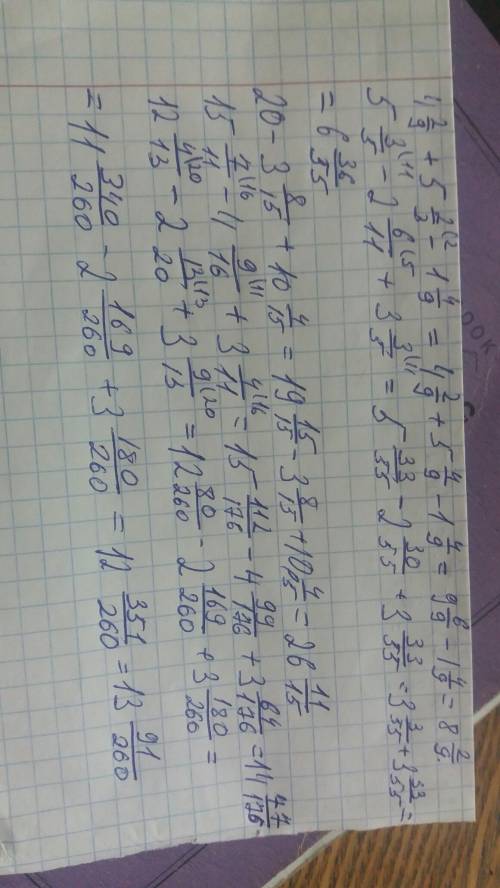 4 2/9 + 5 2\2/3 - 1 4/9 = 4 2/9 + 5 4/9 - 1 4/9 = 9 6/9 - 1 4/9 = 8 2/9.
5 3\11/5 - 2 6\5/11 + 3 3\11/5 = 5 33/55 - 2 30/55 + 3 33/55 = 3 3/55 + 3 33/55 =
= 6 36/55
20 - 3 8/15 + 10 4/15 = 19 15/15 - 3 8/15 + 10 4/15 = 26 11/15
15 7\16/11 - 4 9\11/16 + 3 4\16/11 = 15 112/176 - 4 99/176 + 3 64/176 = 14 77/176
12 4\20/13 - 2 13\13/20 + 3 9\20/13 = 12 80/260 - 2 169/260 + 3 180/260 =
= 11 340/260 - 2 169/260 + 3 180/260 = 12 351/260 = 13 91/260